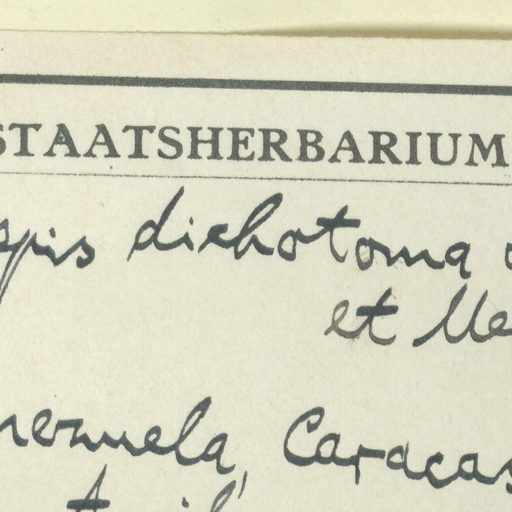 STAATSHERBARIUM
spis dichotoma
et Me
nezuela, Caracas